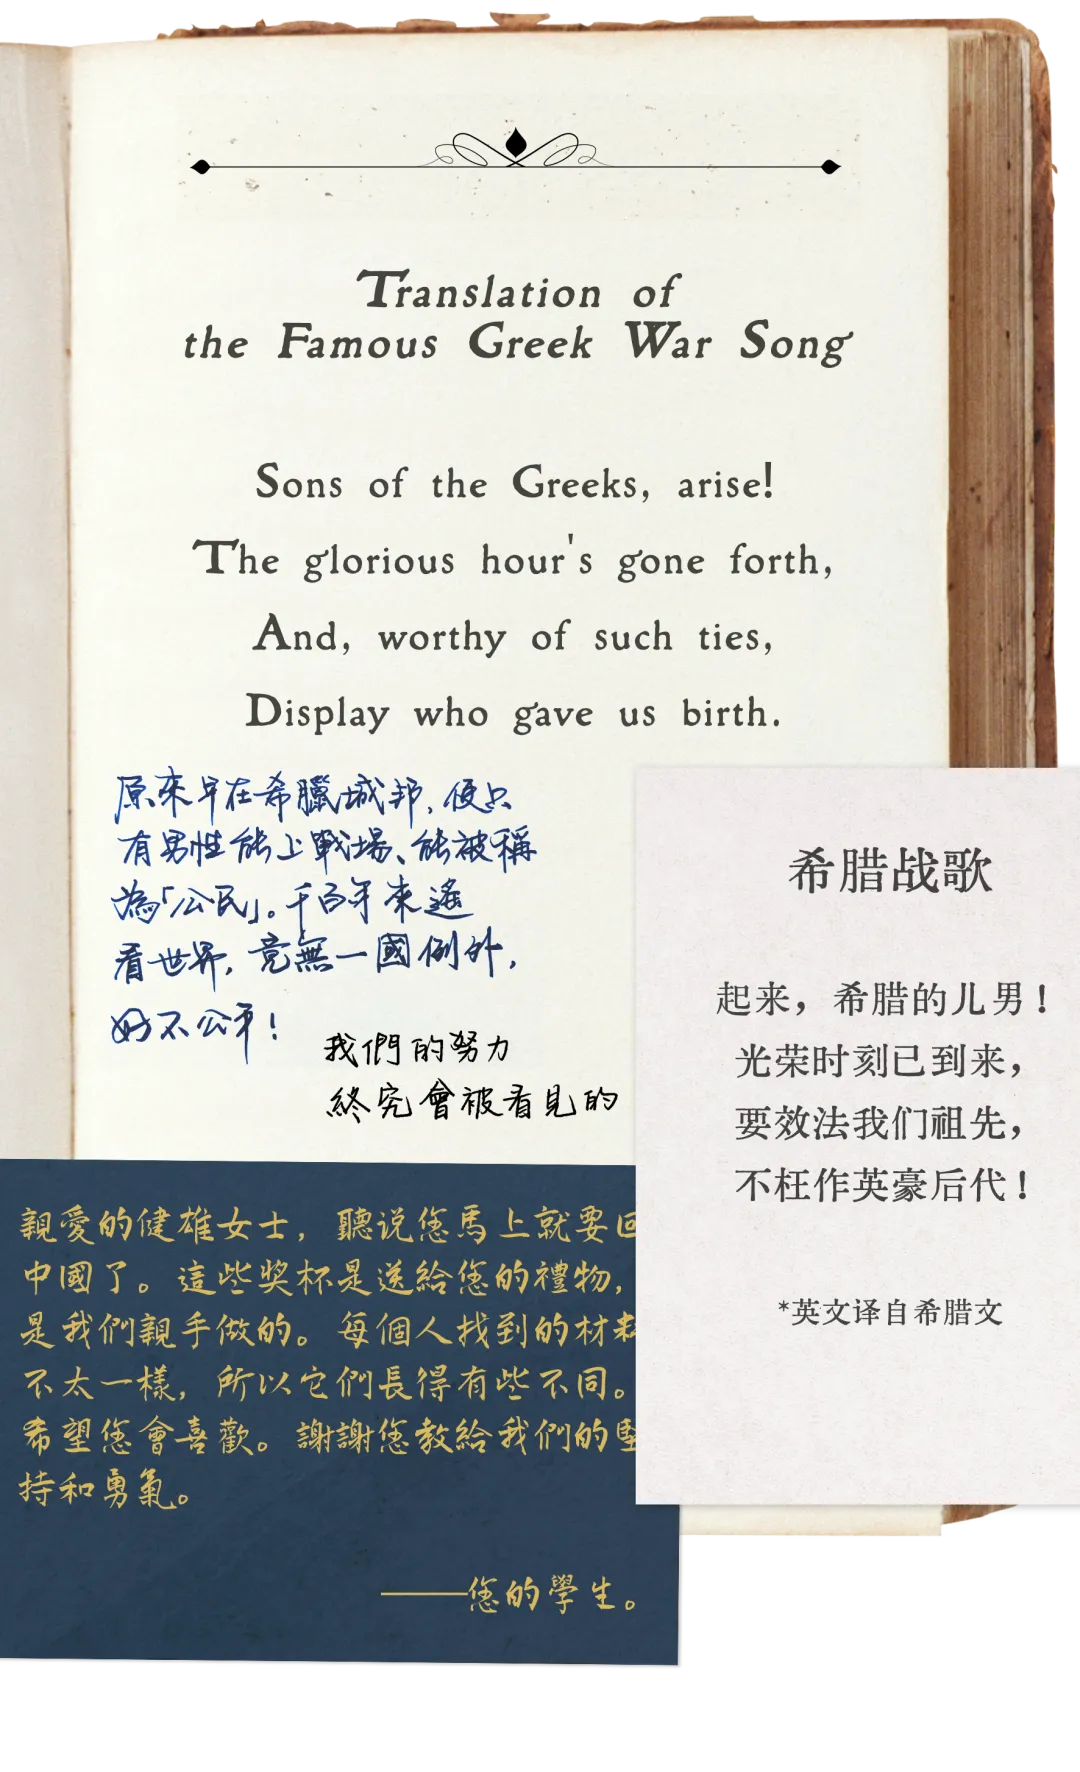 Translation of
the Famous Greek War Song
Sons of the Greeks, arise!
The glorious hour's gone forth,
And, worthy of such ties,
Display who gave us birth.
原來早在希臘城邦，便只
有男性能上戰場、能被稱
為「公民」。千百年來遙
看世界，竟無一國例外，
好不公平！
我們的努力
終究會被看見的
希腊战歌
起来，希腊的儿男！
光荣时刻已到来，
要效法我们祖先，
不枉作英豪后代！
*英文译自希腊文
親愛的健雄女士，聽说您馬上就要回
中國了。這些奖杯是送給您的禮物，
是我們親手做的。每個人找到的材料
不太一樣，所以它們長得有些不同。
希望您會喜歡。謝謝您教給我們的堅
持和勇氣。
——您的學生。